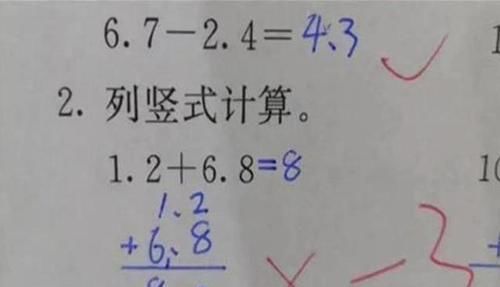 6.7-2.4=4.3
2. 列竖式计算。
1.2+6.8=8
1.2
+6.8
-3